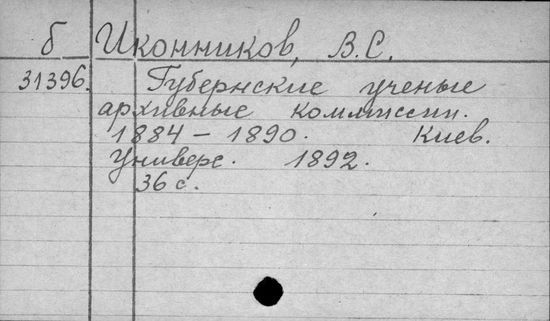 б Иконников, В.С.
31396. Губернские ученые
архивные комиссии.
1884 – 1890. Киев.
Универс. 1892.
36 с.